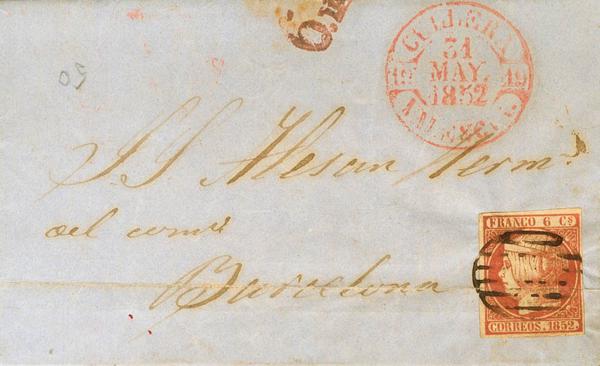 CULLERA
31
MAY.
1852
19 19
VALENCIA
50
S.S. Alesan Herm.s
del com.o
Barcelona
FRANCO 6 Cs
CORREOS. 1852.